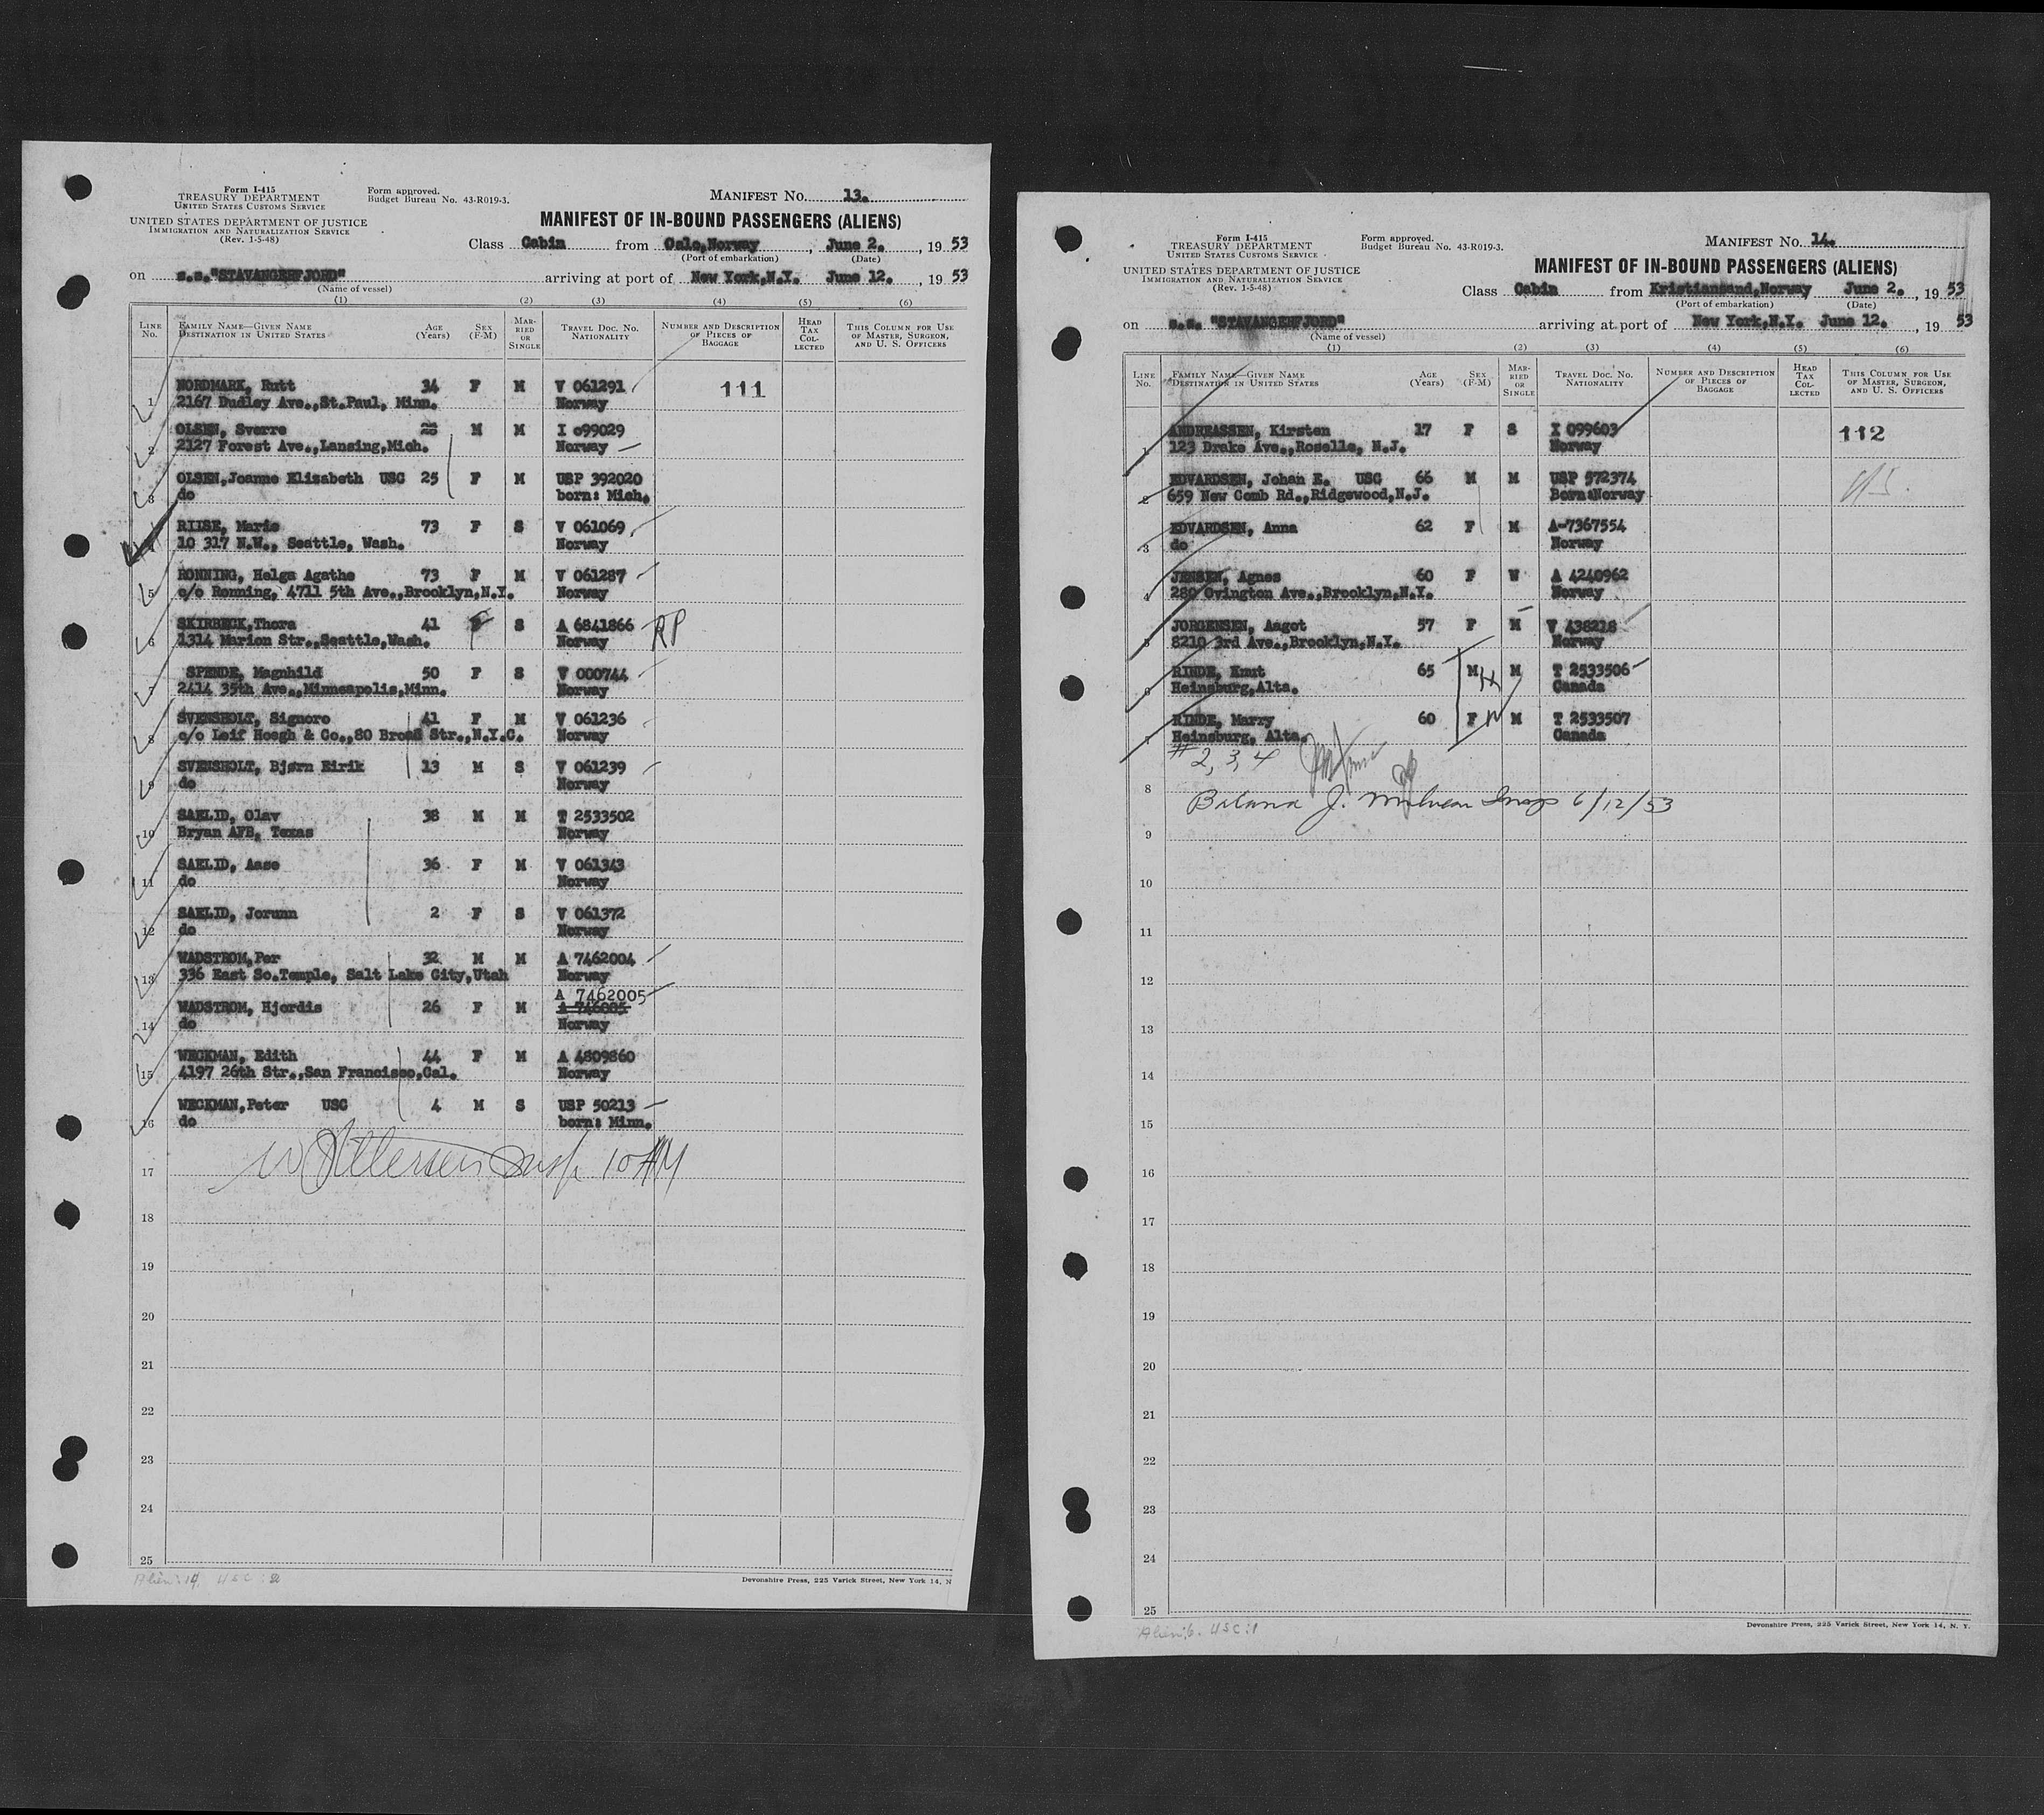 Form I-415
TREASURY DEPARTMENT
UNITED STATES CUSTOMS SERVICE
UNITED STATES DEPARTMENT OF JUSTICE
IMMIGRATION AND NATURALIZATION SERVICE
(Rev. 1-5-48)
Form approved.
Budget Bureau No. 43-R019-3.
MANIFEST No. 13.
MANIFEST OF IN-BOUND PASSENGERS (ALIENS)
Class Cabin from Oslo,Norway, June 2., 19 53
(Port of embarkation) (Date)
on s.s."STAVANGERFJORD" arriving at port of New York,N.Y. June 12., 19 53
(Name of vessel)
(1) (2) (3) (4) (5) (6)
LINE No. FAMILY NAME—GIVEN NAME DESTINATION IN UNITED STATES AGE (Years) SEX (F-M) MARRIED OR SINGLE TRAVEL DOC. NO. NATIONALITY NUMBER AND DESCRIPTION OF PIECES OF BAGGAGE HEAD TAX COLLECTED THIS COLUMN FOR USE OF MASTER, SURGEON, AND U. S. OFFICERS
1 NORDMARK, Rutt 34 F M V 061291 111
2167 Dudley Ave.,St.Paul, Minn. Norway
2 OLSEN, Sverre M M I o99029
2127 Forest Ave.,Lansing,Mich. Norway
3 OLSEN,Joanne Elizabeth USC 25 F M USP 392020
do born: Mich.
4 RIISE, Marie 73 F S V 061069
10 317 N.W., Seattle, Wash. Norway
5 RONNING, Helga Agathe 73 F M V 061287
c/o Ronning, 4711 5th Ave.,Brooklyn,N.Y. Norway
6 SKIRBECK,Thora 41 F S A 6841866 RP
1314 Marion Str.,Seattle,Wash. Norway
7 SPENDE, Magnhild 50 F S V 000744
2414 35th Ave.,Minneapolis,Minn. Norway
8 SVENSHOLT, Signore 41 F M V 061236
c/o Leif Hoegh & Co.,80 Broad Str.,N.Y.C. Norway
9 SVENSHOLT, Bjørn Eirik 13 M S V 061239
do Norway
10 SAELID, Olav 38 M M T 2533502
Bryan AFB, Texas Norway
11 SAELID, Aase 36 F M V 061343
do Norway
12 SAELID, Jorunn 2 F S V 061372
do Norway
13 WADSTROM,Per 32 M M A 7462004
336 East So.Temple, Salt Lake City,Utah Norway
A 7462005
14 WADSTROM, Hjordis 26 F M A 746005
do Norway
15 WECKMAN, Edith 44 F M A 4809860
4197 26th Str.,San Francisco,Cal. Norway
16 WECKMAN,Peter USC 4 M S USP 50213
do born: Minn.
17 10 AM
18
19
20
21
22
23
24
25
Alien: 14. USC: 2
Devonshire Press, 225 Varick Street, New York 14, N
Form I-415
TREASURY DEPARTMENT
UNITED STATES CUSTOMS SERVICE
UNITED STATES DEPARTMENT OF JUSTICE
IMMIGRATION AND NATURALIZATION SERVICE
(Rev. 1-5-48)
Form approved.
Budget Bureau No. 43-R019-3.
MANIFEST No. 14.
MANIFEST OF IN-BOUND PASSENGERS (ALIENS)
Class Cabin from Kristiansand,Norway June 2., 19 53
(Port of embarkation) (Date)
on s.s. "STAVANGERFJORD" arriving at port of New York,N.Y. June 12., 19 53
(Name of vessel)
(1) (2) (3) (4) (5) (6)
LINE No. FAMILY NAME—GIVEN NAME DESTINATION IN UNITED STATES AGE (Years) SEX (F-M) MARRIED OR SINGLE TRAVEL DOC. NO. NATIONALITY NUMBER AND DESCRIPTION OF PIECES OF BAGGAGE HEAD TAX COLLECTED THIS COLUMN FOR USE OF MASTER, SURGEON, AND U. S. OFFICERS
1 ANDREASSEN, Kirsten 17 F S I 099603 112
123 Drake Ave.,Roselle, N.J. Norway
2 EDVARDSEN, Johan E. USC 66 M M USP 572374
659 New Comb Rd.,Ridgewood,N.J. Born:Norway
3 EDVARDSEN, Anna 62 F M A-7367554
do Norway
4 JENSEN, Agnes 60 F W A 4240962
280 Ovington Ave.,Brooklyn,N.Y. Norway
5 JORGENSEN, Aagot 57 F M V 438218
8210 3rd Ave.,Brooklyn,N.Y. Norway
6 RINDE, Knut 65 M M T 2533506
Heinsburg,Alta. Canada
7 RINDE, Marry 60 F M T 2533507
Heinsburg, Alta. Canada
#2, 3, 4
8 J. Insp 6/12/53
9
10
11
12
13
14
15
16
17
18
19
20
21
22
23
24
25
Alien: 6. USC: 1
Devonshire Press, 225 Varick Street, New York 14, N. Y.